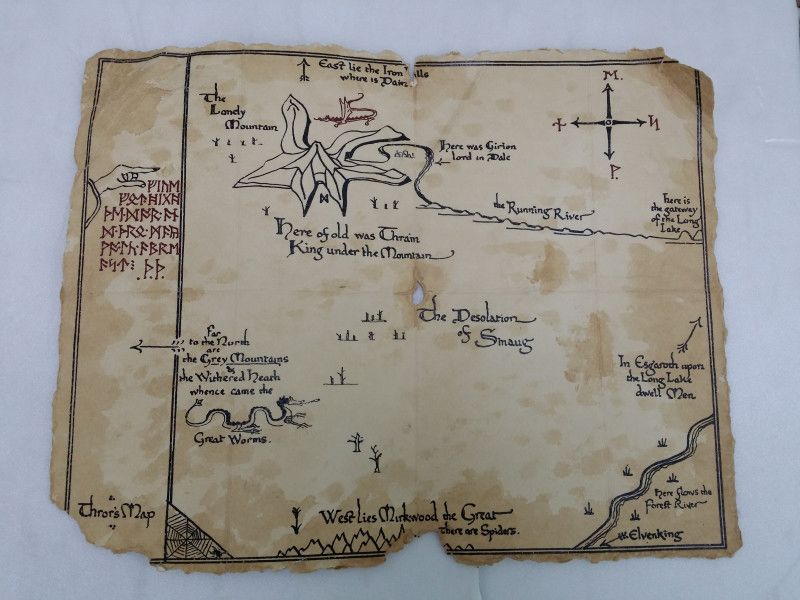 East lie the Iron
where is Dain
The
Lonely
Mountain
Here was Girion
lord in Dale
ᛖ.
ᚾ
ᛋ
ᚹ.
the Running River
here is
the gateway
of the Long
Lake
ᚠᛁᚢᛖ
ᚪᛋᛏ᛬ ᚦ.ᚦ.
ᛞ
Here of old was Thrain
King under the Mountain
The Desolation
of Smaug
Far
to the North
are
the Grey Mountains
&
the Withered Heath
whence came the
Great Worms.
In Esgaroth upon
the Long Lake
dwell Men
here flows the
Forest River
Elvenking
Thror's Map
West lies Mirkwood the Great
there are Spiders.